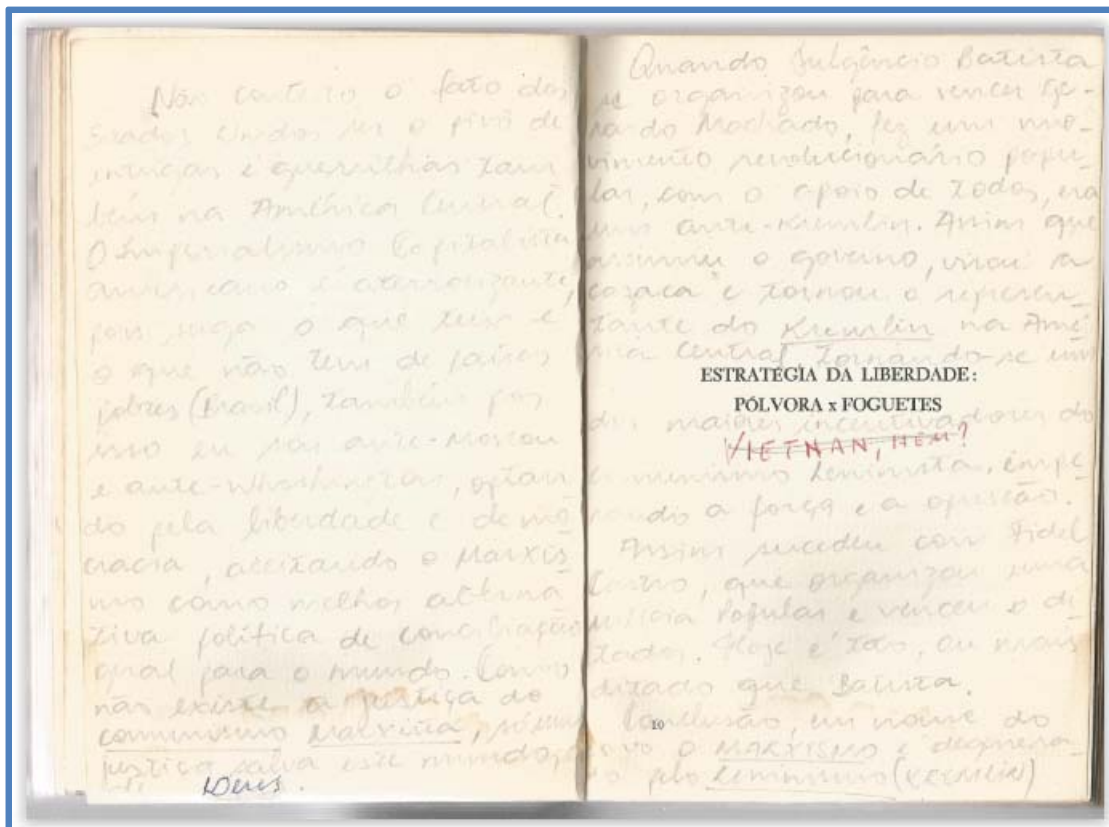 Não contesto o fato dos
Estados Unidos ser o pivô de
intrigas e guerrilhas tam
bém na América Central.
O Imperialismo Capitalista
americano é aterrorizante,
pois suga o que tem e
o que não tem de países
pobres (Brasil), também por
isso eu sou ante-Moscou
e ante-Whashington, optan
do pela liberdade e demo
cracia, aceitando o Marxis-
mo como melhor alterna
tiva política de conciliação
geral para o mundo. Como
não existe a justiça do
comunismo Marxista,
justiça salva este mundo,
Deus.
Quando Fulgêncio Batista
se organizou para vencer Ge-
rardo Machado, fez um mo-
vimento revolucionário popu-
lar, com o apoio de todos, era
um ante-Kremlin. Assim que
assumiu o governo, virou a
casaca e tornou o represen-
tante do Kremlin na Amé
rica Central, tornando-se um
ESTRATEGIA DA LIBERDADE:
PÓLVORA x FOGUETES
dos maiores incentivadores do
VIETNAN, HEM?
comunismo Leninista, impe
rando a força e a opressão.
Assim sucedeu com Fidel
Castro, que organizou uma
milícia Popular e venceu o di
tador. Hoje é tão, ou mais
ditador que Batista.
10
Conclusão, em nome do
povo o MARXISMO é degenera-
do pelo Leninismo (KREMLIN)